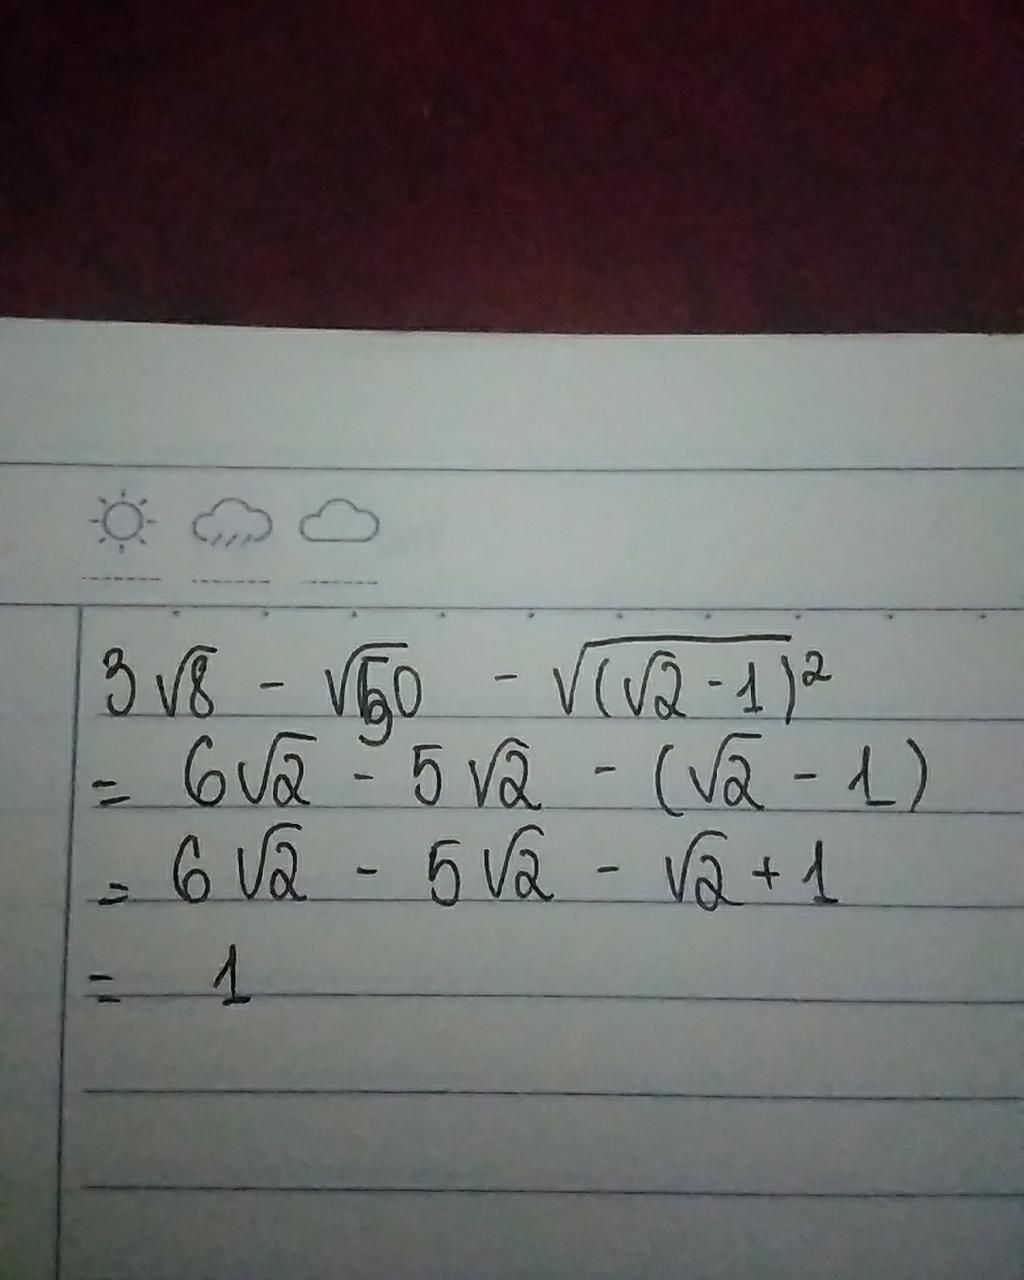 3√8 - √50 - √(√2-1)²
= 6√2 - 5√2 - (√2 - 1)
= 6√2 - 5√2 - √2 + 1
= 1